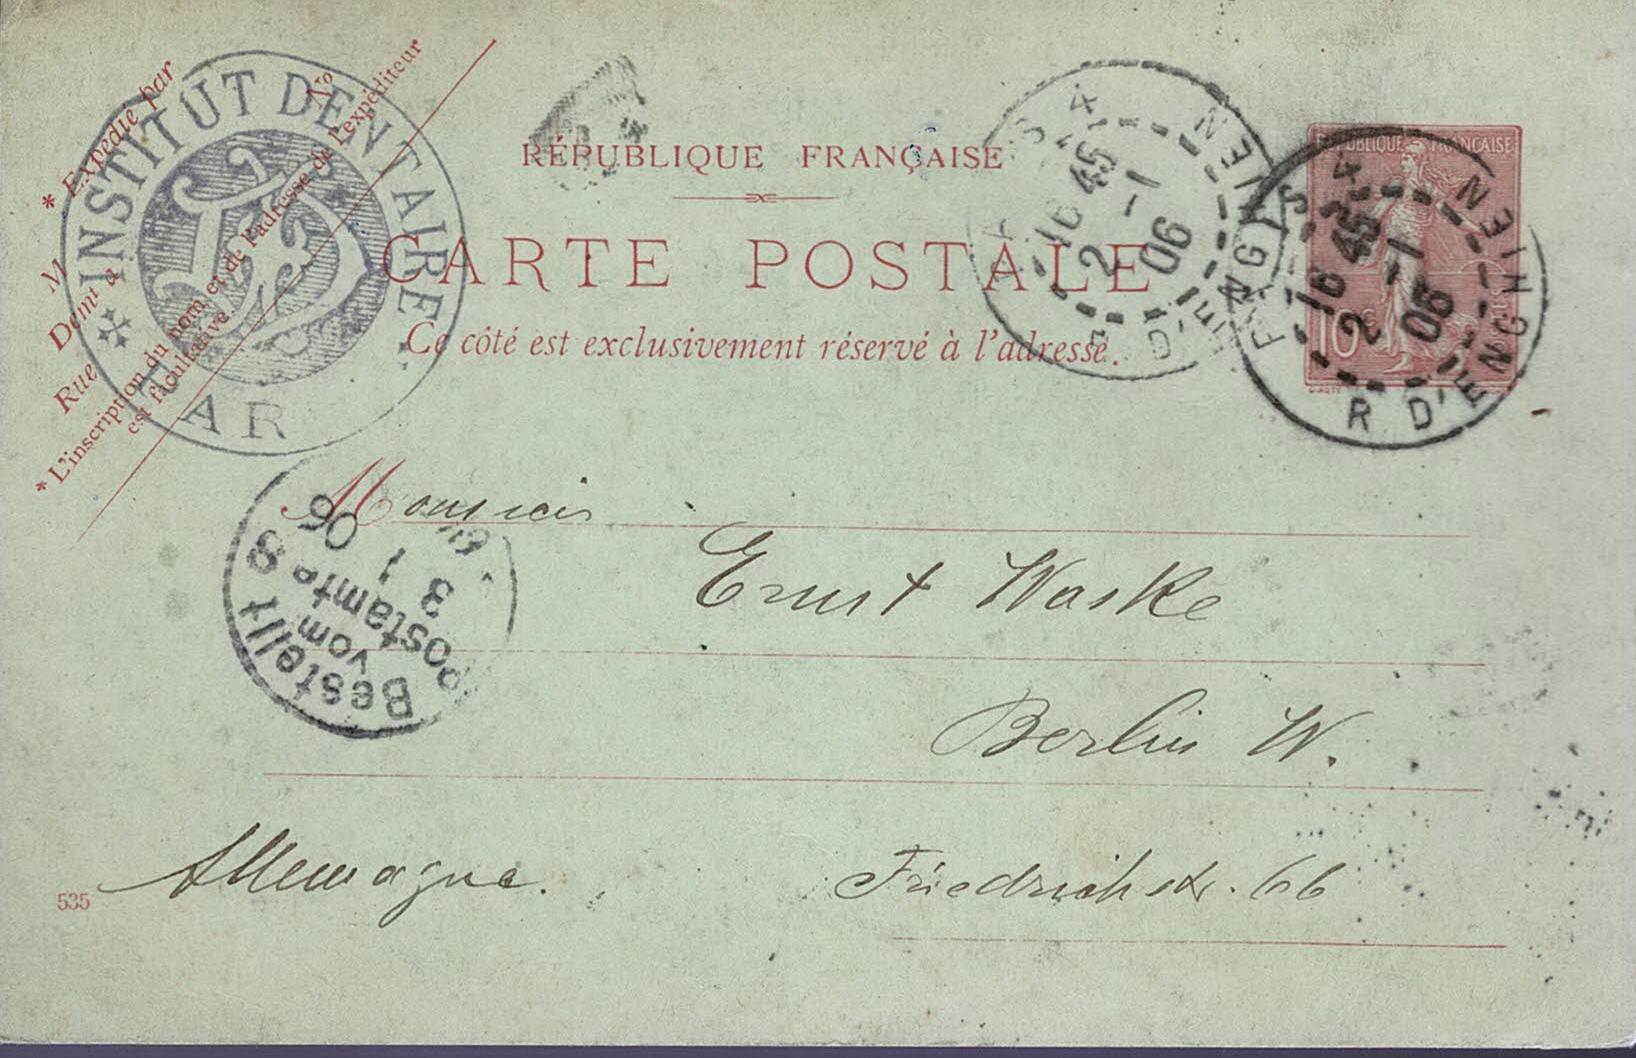 * Expédié par
M
Demt à
Rue
No
* L'inscription du nom et de l'adresse de l'expéditeur
est facultative.
INSTITUT DENTAIRE
PAR
RÉPUBLIQUE FRANÇAISE
CARTE POSTALE
Ce côté est exclusivement réservé à l'adresse.
16 45
2 -1
06
RÉPUBLIQUE FRANÇAISE
10
PARIS 4
16 45
2 -1
06
R D'ENGHIEN
Monsieur
Ernst Waske
Berlin W.
Allemagne.
Friedrichstr. 66
Bestellt
vom
Postamte 8
3
1
06
535